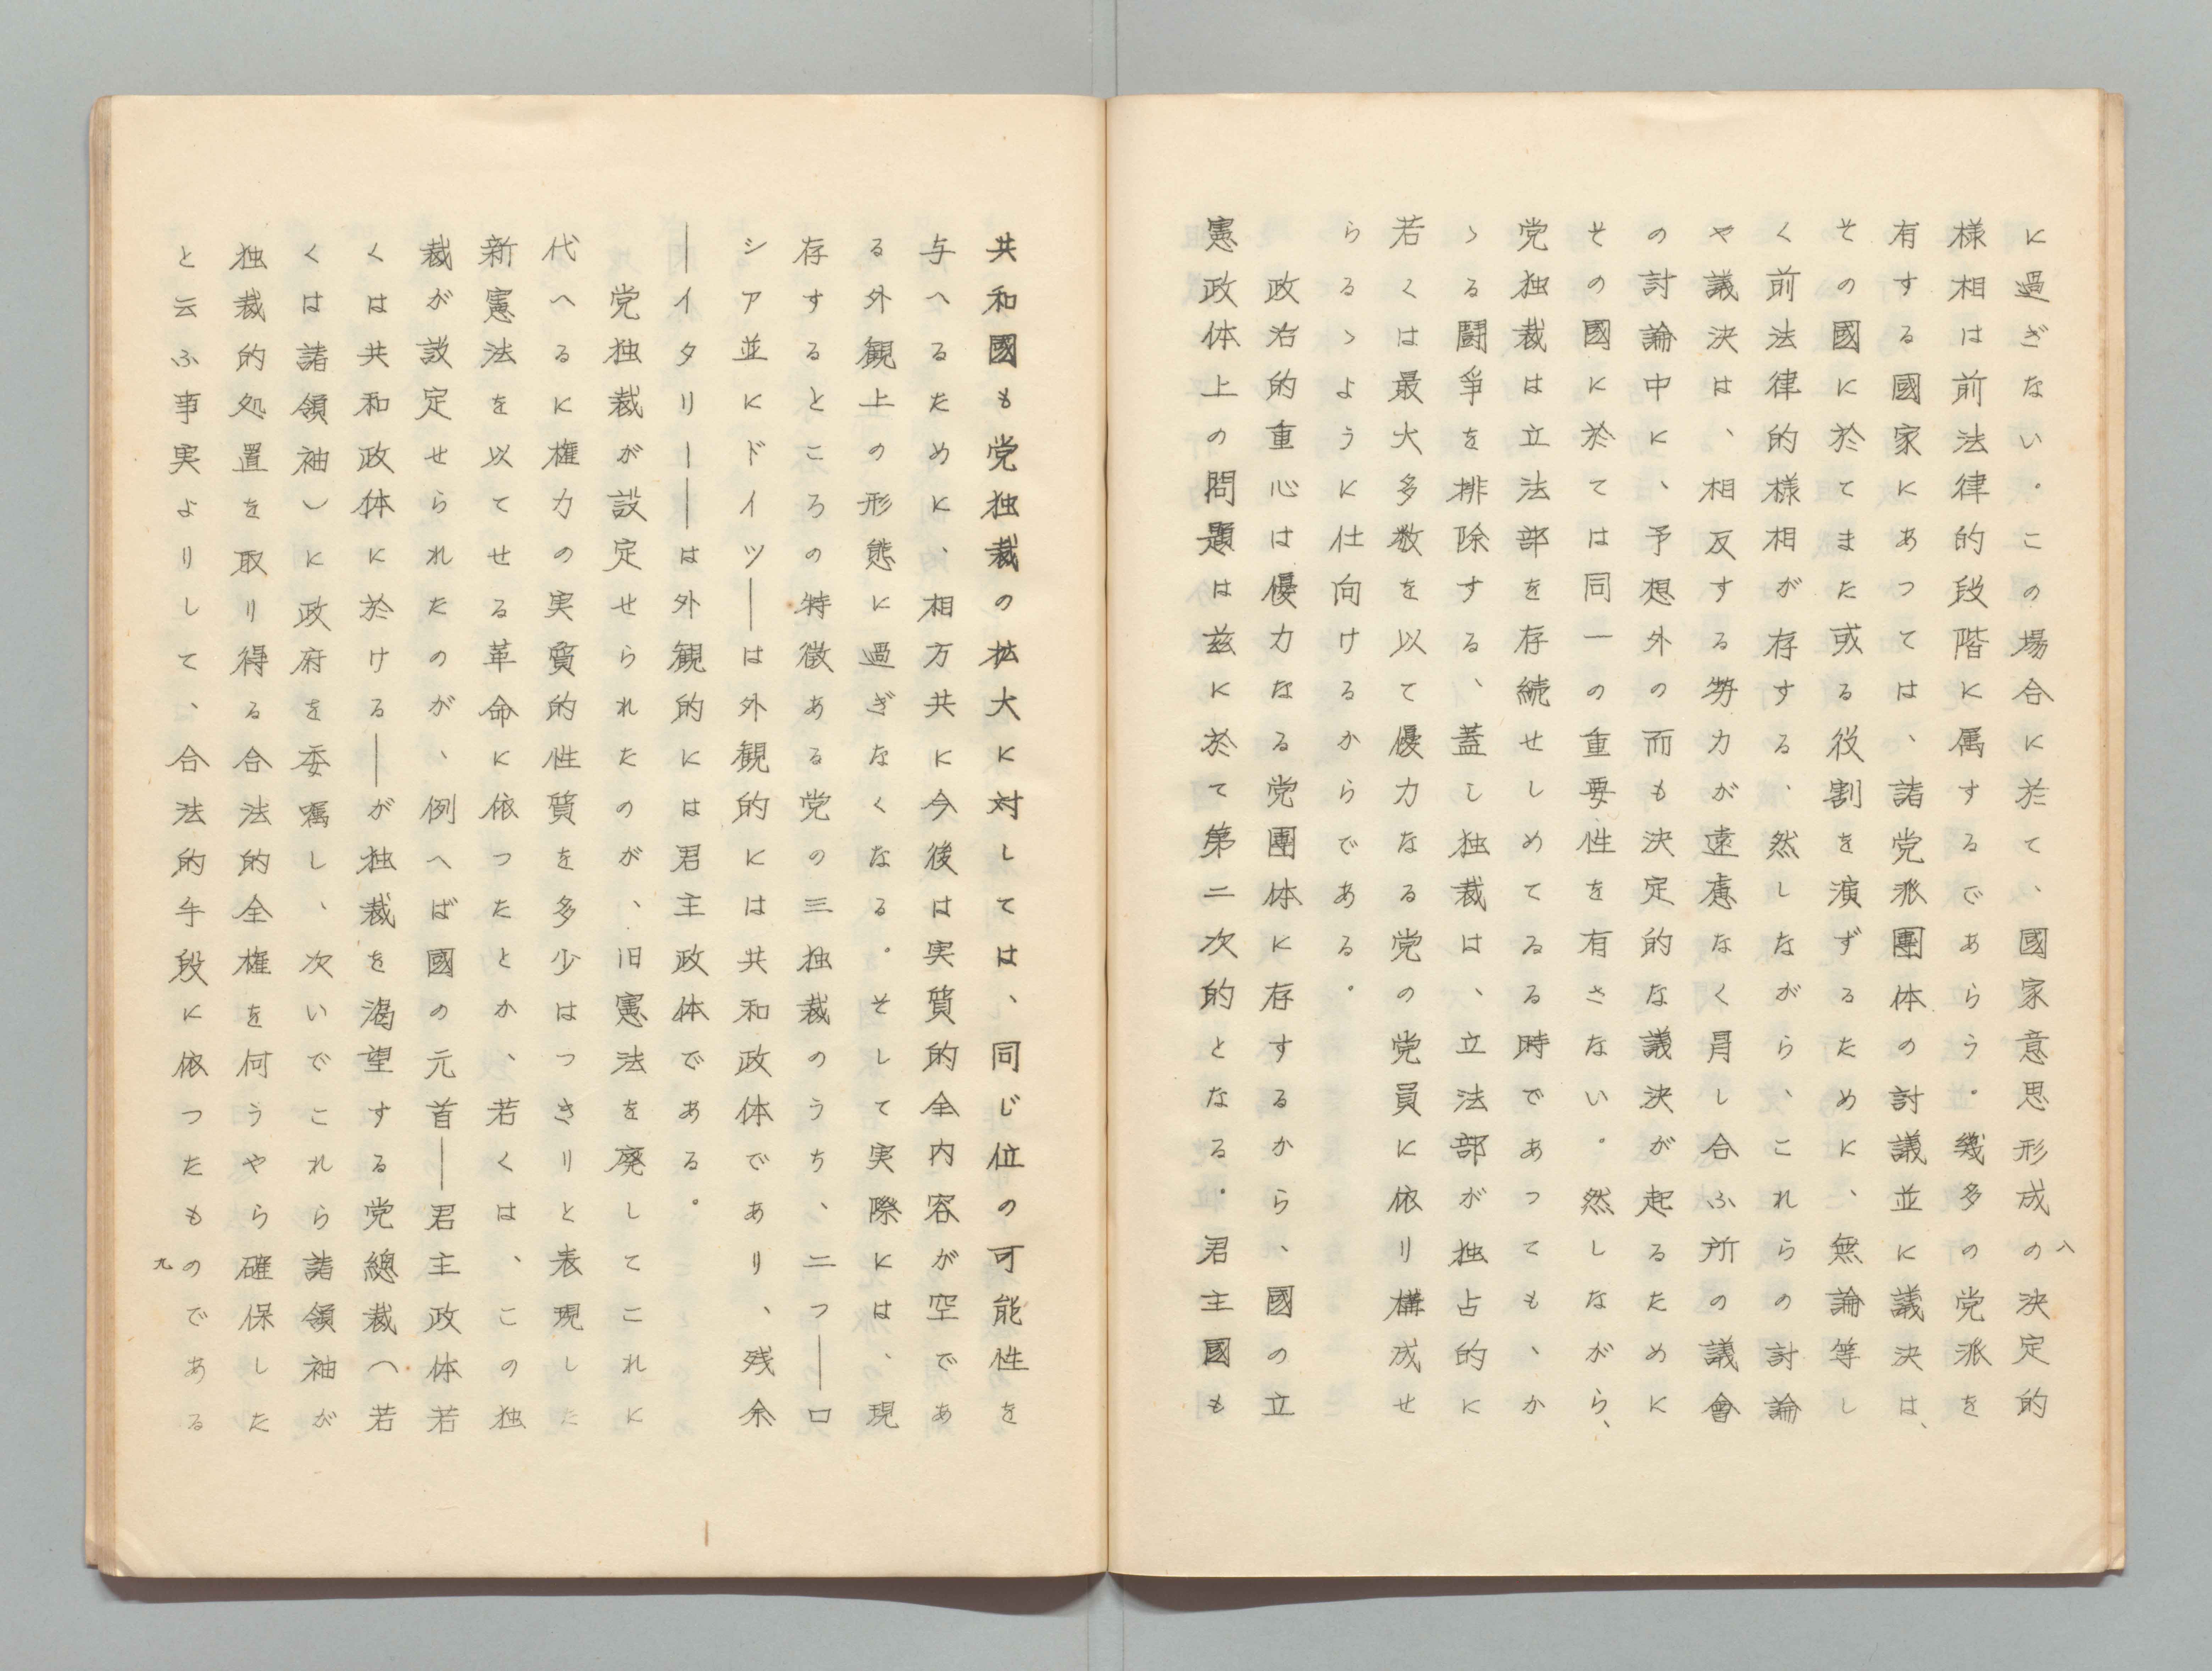 に過ぎない。この場合に於て、國家意思形成の決定的
様相は前法律的段階に属するであらう。幾多の党派を
有する國家にあつては、諸党派團体の討議並に議決は、
その國に於てまた或る役割を演ずるために、無論等し
く前法律的様相が存する、然しながら、これらの討論
や議決は、相反する勢力が遠慮なく冐し合ふ所の議會
の討論中に、予想外の而も決定的な議決が起るために
その國に於ては同一の重要性を有さない。然しながら、
党独裁は立法部を存続せしめてゐる時であつても、か
ゝる闘爭を排除する、蓋し独裁は、立法部が独占的に
若くは最大多数を以て優力なる党の党員に依り構成せ
らるゝように仕向けるからである。
政治的重心は優力なる党團体に存するから、國の立
憲政体上の問題は茲に於て第二次的となる。君主國も
八
共和國も党独裁の拡大に対しては、同じ位の可能性を
与へるために、相方共に今後は実質的全内容が空であ
る外観上の形態に過ぎなくなる。そして実際には、現
存するところの特徴ある党の三独裁のうち、二つ―ロ
シア並にドイツ―は外観的には共和政体であり、残余
―イタリー―は外観的には君主政体である。
党独裁が設定せられたのが、旧憲法を廃してこれに
代へるに権力の実質的性質を多少はつきりと表現した
新憲法を以てせる革命に依つたとか、若くは、この独
裁が設定せられたのが、例へば國の元首―君主政体若
くは共和政体に於ける―が独裁を渇望する党總裁（若
くは諸領袖）に政府を委嘱し、次いでこれら諸領袖が
独裁的処置を取り得る合法的全権を何うやら確保した
と云ふ事実よりして、合法的手段に依つたものである
九